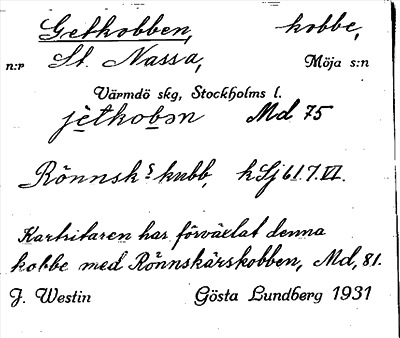 Getkobben, kobbe,
n:r St. Nassa, Möja s:n
Värmdö skg, Stockholms l.
jètkobən Md 75
Rönnsk:s kubb, hSj 61.7.VI.
Kartritaren har förväxlat denna
kobbe med Rönnskärskobben, Md, 81.
J. Westin Gösta Lundberg 1931